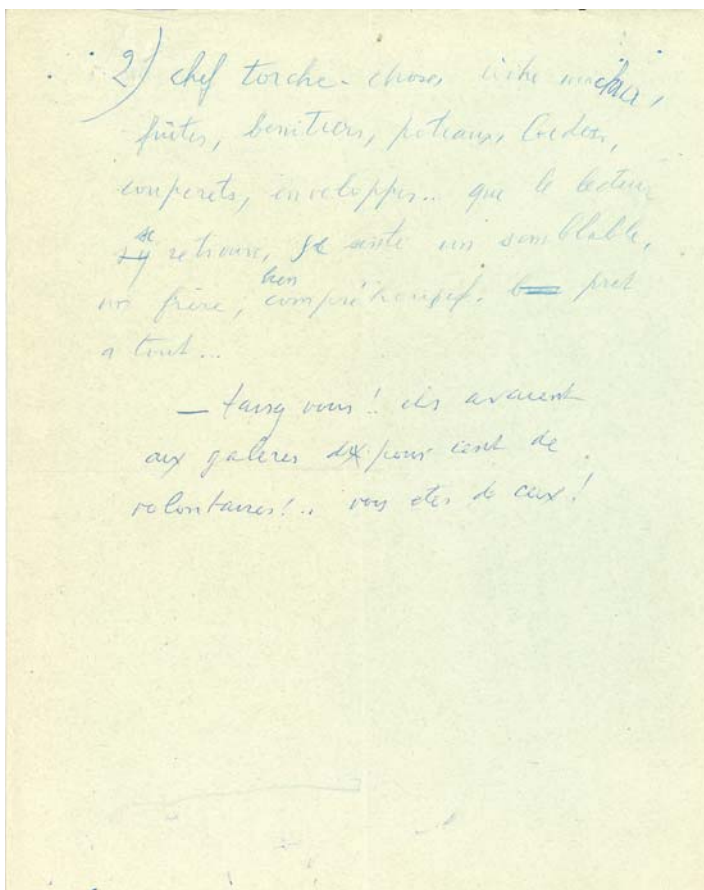 2) chef torche-choses
flûtes, benitiers, poteaux,
couperets, enveloppes.. que le lecteur
se
s'y retrouve, se sente un semblable,
bien
un frère, compréhensif. pret
a tout...
— taisez vous! ils avaient
aux galeres dix pour cent de
volontaires!.. vous etes de ceux!